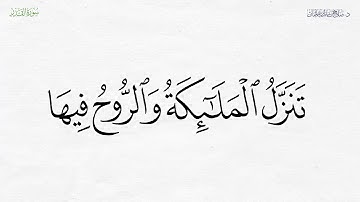 سورة القدر
تَنَزَّلُ ٱلْمَلَٰٓئِكَةُ وَٱلرُّوحُ فِيهَا